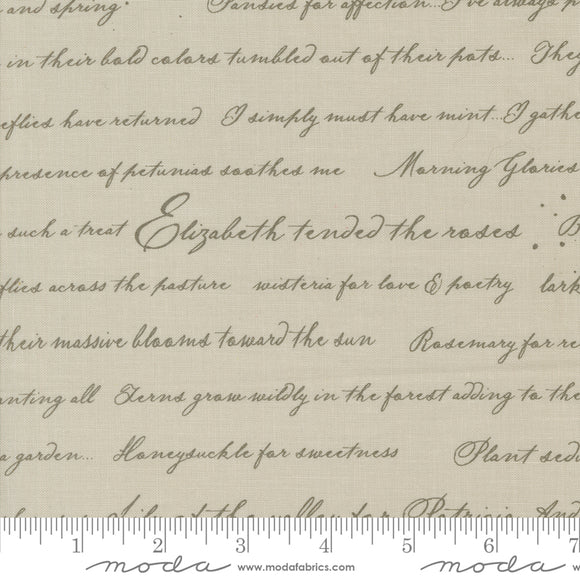 and spring. Pansies for affection... I've always
in their bold colors tumbled out of their pots... They
eflies have returned I simply must have mint... I gathe
presence of petunias soothes me Morning Glories
such a treat Elizabeth tended the roses B
flies across the pasture wisteria for love & poetry lark
their massive blooms toward the sun Rosemary for re
anting all Ferns grow wildly in the forest adding to the
a garden... Honeysuckle for sweetness Plant sedu
Lily of the valley for Patricia And
1 2 3 4 5 6 7
moda www.modafabrics.com moda